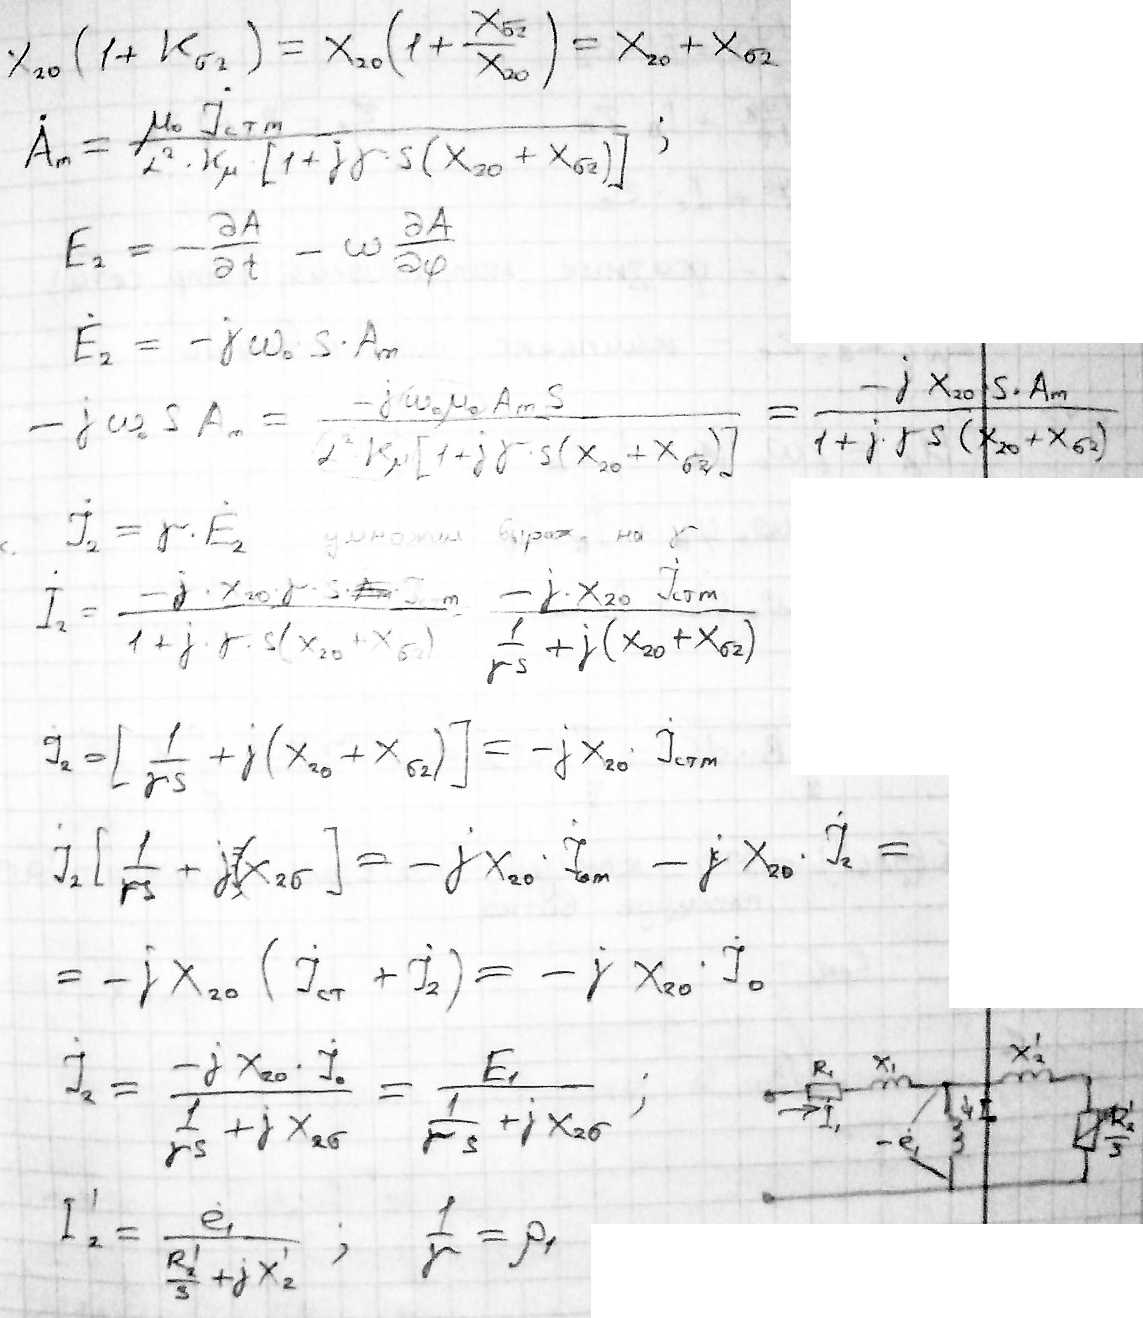 X₂₀ (1 + K_σ2) = X₂₀ (1 + X_σ2/X₂₀) = X₂₀ + X_σ2
Ȧ_m = μ₀ J̇_стm / (α² · K_μ · [1 + jγ · s(X₂₀ + X_σ2)]) ;
E₂ = −∂A/∂t − ω ∂A/∂φ
Ė₂ = −jω₀ · s · A_m
−jω₀ s A_m = −jω₀μ₀ A_m s / (α² · K_μ [1 + jγ · s(X₂₀ + X_σ2)]) = −j X₂₀ s · A_m / (1 + j · γ s (X₂₀ + X_σ2))
J̇₂ = γ · Ė₂ умножим выраж. на γ
İ₂ = −j · X₂₀ · γ · s · J̇_m / (1 + j · γ · s(X₂₀ + X_σ2)) −j · X₂₀ J̇_стm / (1/γs + j(X₂₀ + X_σ2))
J̇₂ = [1/γs + j(X₂₀ + X_σ2)] = −jX₂₀ · J̇_стm
J̇₂ [1/γs + jX_2σ] = −jX₂₀ · J̇_стm − jX₂₀ · J̇₂ =
= −jX₂₀ (J̇_ст + J̇₂) = −jX₂₀ · J̇₀
J̇₂ = −jX₂₀ · J̇₀ / (1/γs + jX_2σ) = E₁ / (1/γs + jX_2σ) ;
R₁ X₁ X₂′
I₁ −ė₁ R₂′/s
I₂′ = ė₁ / (R₂′/s + jX₂′) ; 1/γ = ρ₁